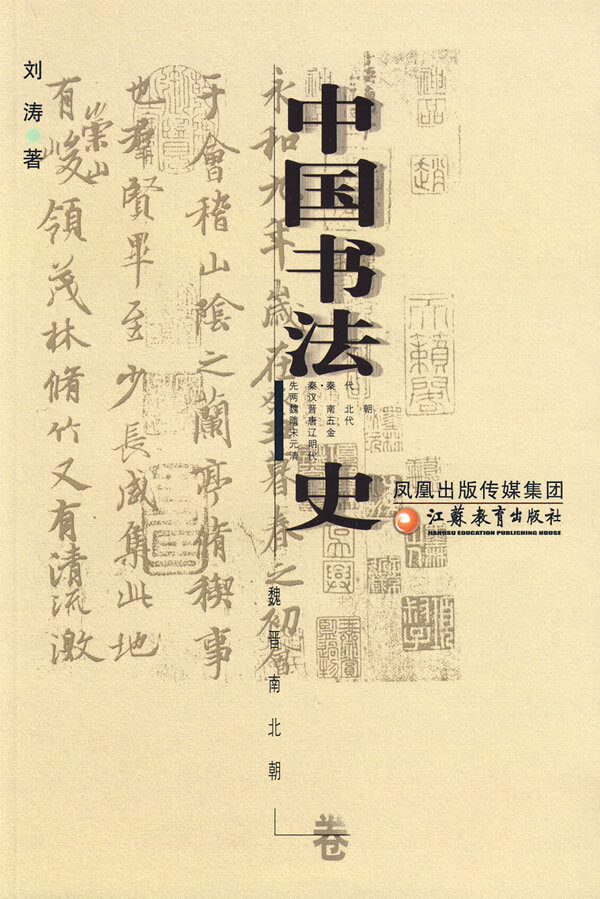 刘涛·著
中国书法史
先秦·秦代
两汉
魏晋南北朝
隋唐五代
宋辽金
元明
清代
凤凰出版传媒集团
江苏教育出版社
JIANGSU EDUCATION PUBLISHING HOUSE
魏晋南北朝
卷
永和九年歲在癸丑暮春之初會
于會稽山陰之蘭亭脩稧事
也羣賢畢至少長咸集此地
有崇山峻領茂林脩竹又有清流激
天籟閣